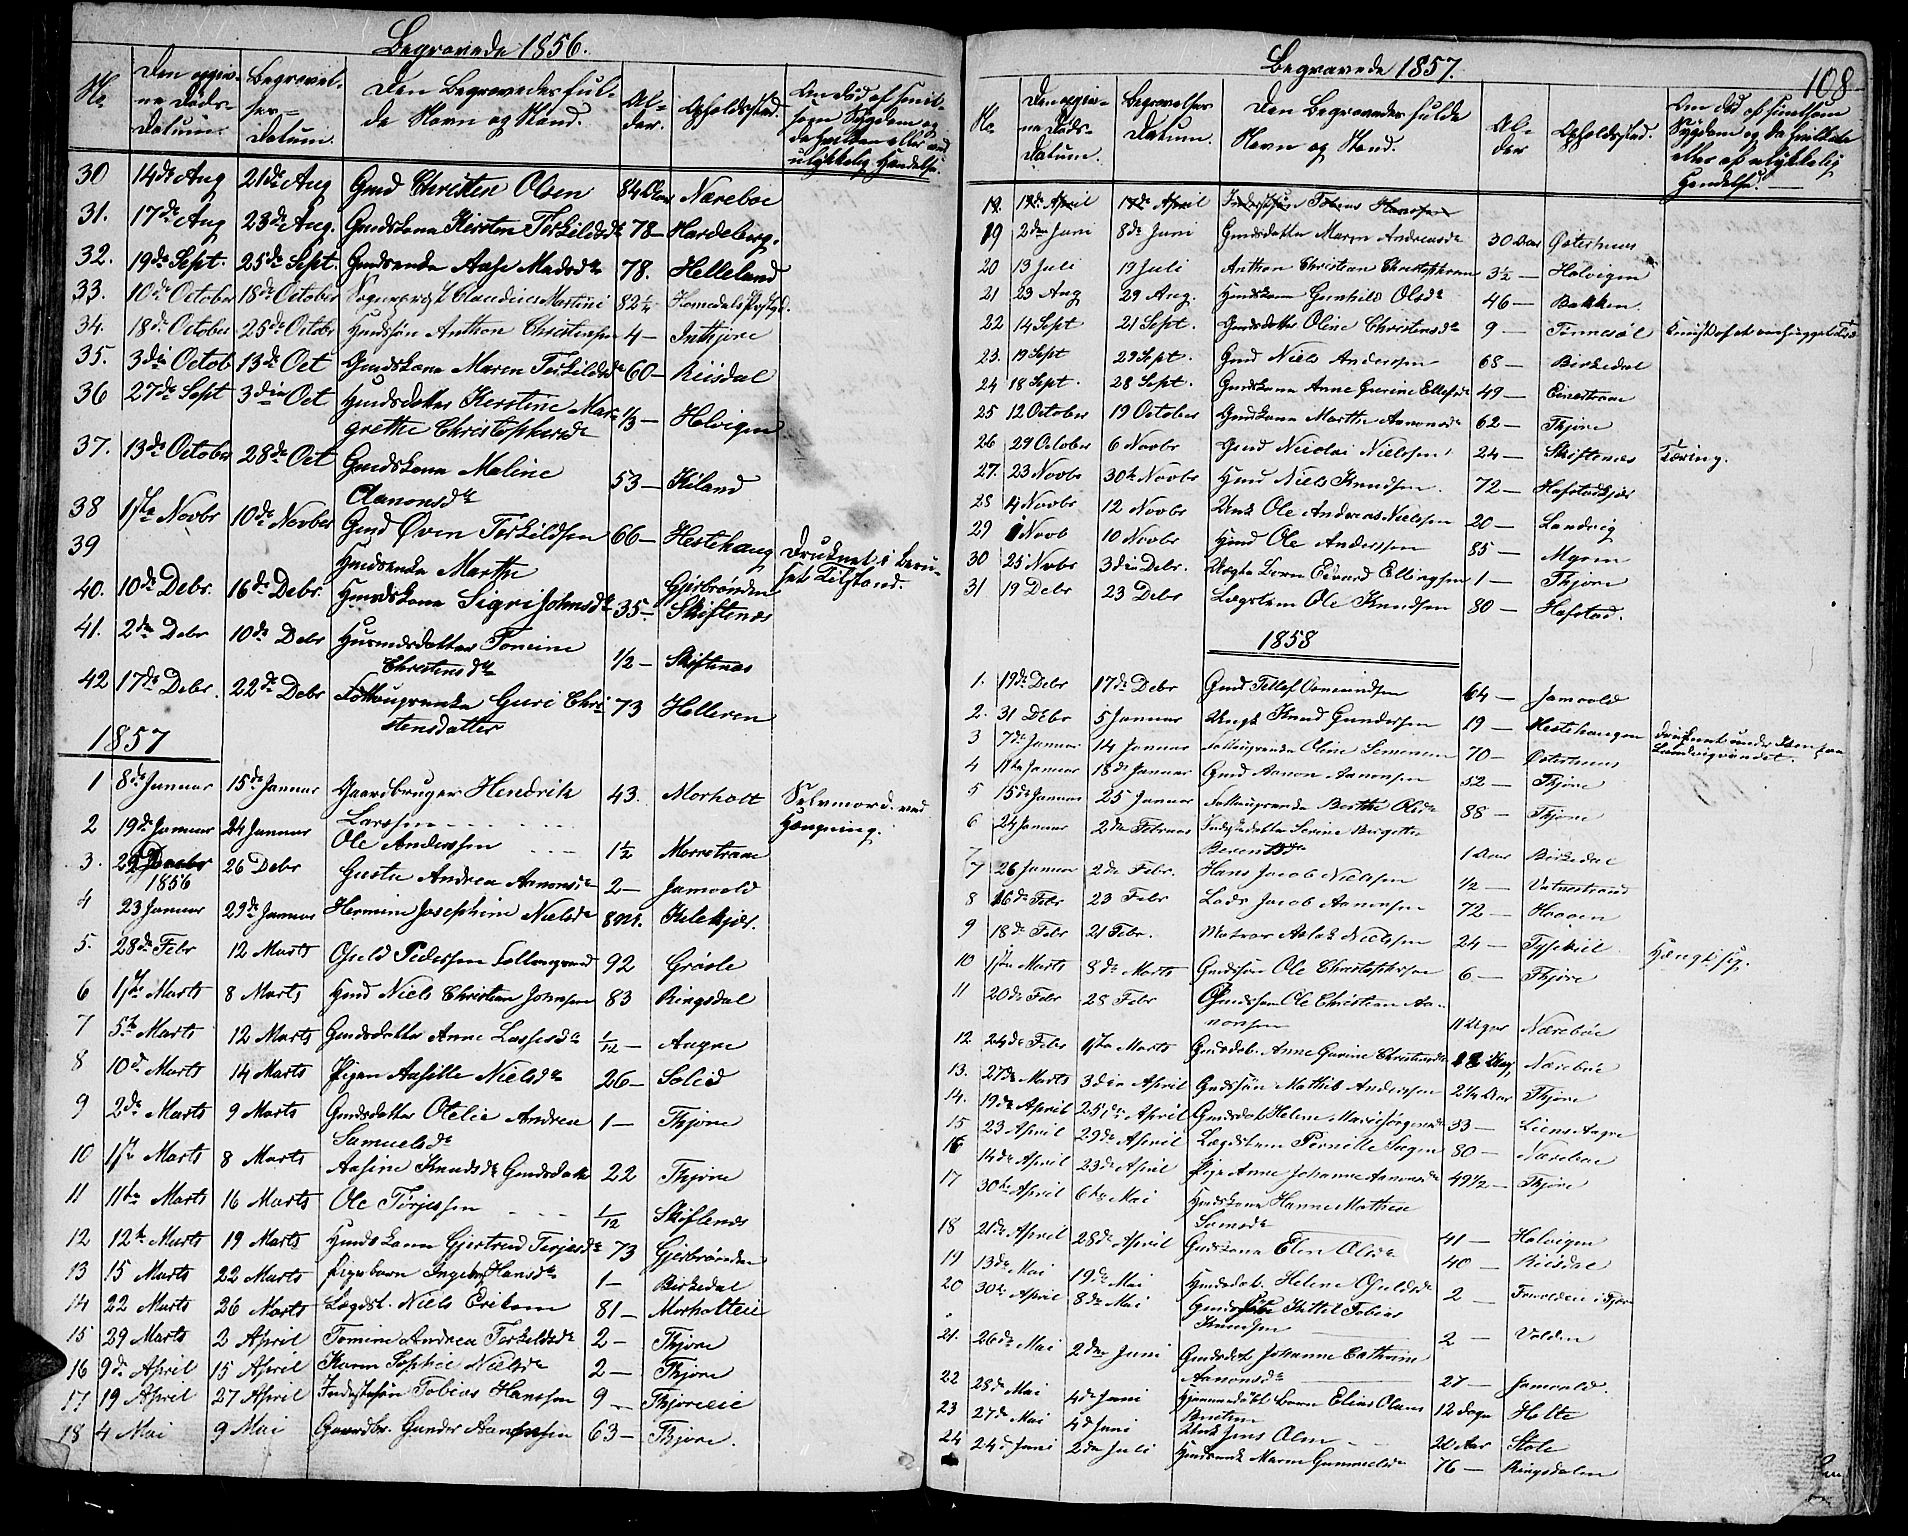 Begravede 1856.
No. Den opgivne Døds-Datum. Begravelses-Datum. Den Begravedes fulde Navn og Stand. Alder. Opholdssted. Om død af smitsom Sygdom og da hvilken eller ved ulykkelig Hændelse.
30 14de Aug 21de Aug Gmd Christen Olsen 84 Aar Nærebøe
31. 17de Aug 23de Aug. Gmdskone Kirsten Terkildsdr 78 — Hardeberg.
32. 19de Sept. 25de Sept. Gmdsenke Aase Madsdr 78. Helleland
33. 10de October 18de October Claudius Martini 82½ Homedals Præstgd.
34. 18de October 25de Octobr Hmdssøn Anthon Christensen 4 — Inthjøre
35. 3die Octob 13de Oct Gmdskone Maren Terkildsdr 60 — Riisdal
36 27de Sept 3die Oct Hmdsdatter Kirstine Mar-
grethe Christophersdr ⅓ — Holvigen
37. 13de October 28de Oct Gmdskone Maline
Aanonsdr 53 — Kiland
38 1ste Novbr 10de Novber Gmd Øven Terkildsen 66 — Hestehaug Druknet i beru-
set Tilstand.
39 Hmdsenke Marthe Gjerbrønden
40. 10de Debr. 16de Debr. Hmdskone Sigri Johnsdr 35 — Skiftenes
41. 2den Debr 10de Debr Husmdsdatter Tomine
Christensdr ½ — Skiftenes
42 17de Debr. 22de Debr Føllaugsenke Guri Chri-
stensdatter 73 Helleren
1857
1 8de Januar 15de Januar Gaardbruger Hendrik
Larssen 43. Morholt Selvmord ved
Hængning.
2 19de Januar 24 Januar Ole Anderssen 1½ Morretraae
3. 22 Decbr
1856 26 Debr Gusta Andrea Aanonsdr 2 — Jamvold
4 23 Januar 29de Januar Hermine Josephine Nielsdr 8 M. Kilekjær.
5. 28de Febr 12 Marts Ofeld Pedersen Follaugmand 92 Grøsle
6 1ste Marts 8 Marts Hmd Niels Christian Johnsen 83 Ringsdal
7 5te Marts 12 Marts Gmdsdatter Anne Lassesdr 1/12 — Aagre
8 10de Marts 14 Marts Pigen Aasille Nielsdr 26 — Solied
9 2de Marts 9 Marts Gmdsdatter Otelie Andrea
Samuelsdr 1 — Thjøre
10 1ste Marts 8 Marts Aasine Knudsdr Gmdsdatter 22 Thjøre
11 11te Marts 16 Marts Ole Terjessen 1/12 Skiftenes
12 12te Marts 19 Marts Hmdskone Gjertrud Terjesdr 73 Gjerbrønden
13 15 Marts 22 Marts Pigebarn Ingeborg Hansdr 1 — Birkedal
14 22 Marts 26 Marts Lægdsl. Niels Eriksen 81 — Morholteie
15 29 Marts 2 April Tomine Andrea Terkildsdr 2 — Thjøre
16 9de April 15 April Karen Sophie Nielsdr 2 — Thjøre
17 19 April 27 April Inderstsøn Tobias Hanssen 9 — Thjøreeie
18 4 Mai 9 Mai Gaardbr. Gunder Aanonsen 63 — Thjøre.
Begravede 1857.
108
No. Den opgivne Døds-Datum. Begravelses Datum. Den Begravedes fulde Navn og Stand. Alder Opholdssted. Om død af smitsom Sygdom og da hvilken eller af ulykkelig Hændelse.
18. 19de April 19de April Inderstsøn Tobias Hanssen
19 2den Juni 8de Juni Gmdsdatter Maren Andreasdr 30 Aar Østerhuus
20 13 Juli 19 Juli Anthon Christian Christophersen 3½ — Holvigen
21 23 Aug 29 Aug. Hmdskone Gunhild Olsdr 46 — Bakken.
22 14 Sept 21 Sept. Gmdsdatter Oline Christensdr 9 — Tønnesøl
23. 19 Sept 29 Sept. Gmd Niels Anderssen 68 — Birkedal
24 18 Sept. 28 Sept. Gmdskone Anne Gurine Ellefsdr 49 —
25 12 October 19 October Gmdskone Marthe Aanonsdr 62 — Thjøre
26 29 October 6 Novbr Gmd Nicolai Nielssen 24 — Skiftenes Tæring.
27. 23 Novbr 30te Novbr Hmd Niels Knudsen. 72 — Hafstadkjær
28 4 Novbr 12 Novbr Unk Ole Andreas Nielssen 20 — Landvig
29 1 Novb 10 Novbr Hmd Ole Anderssen 85 — Myren
30 25 Novbr 3die Debr. Uægte Barn Edvard Ellingsen 1 — Thjøre
31 19 Debr 23 Debr Lægdslem Ole Knudsen 80 — Hafstad.
1858
1. 19de Debr 17de Debr Gmd Tellef Osmundsen 64 — Jamvold
2. 31 Debr 5 Januar Ungk Knud Gundersen 19 — Hestehaugen Druknet under Isen paa
Landvigvandet.
3 7de Januar 14 Januar Follaugsenke Oline Simonsen 70 — Østerhuus
4 11te Januar 18de Januar Gmd Aanon Aanonsen 52 — Thjøre
5 15de Januar 25 Januar Follaugsenke Berthe Olsdr 88 — Thjøre
6 24 Januar 2den Februar Indstdatter Serine Birgitte
Berentsdr 1 Aar Birkedal
7 26 Januar 2den Febr. Hans Jacob Nielsen ½ — Vatnestrand
8 16de Febr 23 Febr Lods Jacob Aanonsen 72 — Haaven
9 18de Febr 21 Febr. Matros Aslak Nielssen 24 — Tyskiil Hængt sig.
10 1ste Marts 8de Marts Gmdssøn Ole Christophersen 6 — Thjøre
11 20de Febr 28 Febr Gmdssøn Ole Christian Aa-
nonsen 11 Uger Nærebøe
12 24de Febr 1ste Marts Gmdsdat. Anne Gurine Christensdr Nærebøe
13. 27de Marts 3die April Gmdssøn Mathis Anderssen 2¼ Aar Thjøre
14. 19de April 25de April Gmdsdat. Helene Marie Jørgensdr 33 — Liene Aagre
15 23 April 29de April Lægdslem Pernille 80 — Nærebøe
16 14de April 23de April Pige Anne Johanne Aanonsdr 49½ — Thjøre
17 30te April 6te Mai Hmdskone Hanne Mathea
41 — Holvigen
18 21de April 28de April Gmdskone Elen Olsdr 40 — Riisdal
19 13de Mai 19de Mai Hmdsdat. Helene Ofeldsdr 2 —
20 30te April 8de Mai Gmdssøn Kittel Tobias
Knudsen 2 — Volden
21. 26de Mai 2den Juni Gmdsdat. Johanne Cathrine
Aanonsdr 27 — Jamvold.
22 28de Mai 4de Juni Barn Elias Olaus
12 dage Holte
23 27de Mai 4de Juni Unk Jens Olsen 20 Aar Støle
24 24de Juni 2den Juli Hmdsenk Maren Gunmelsdr 76 — Ringsdalen